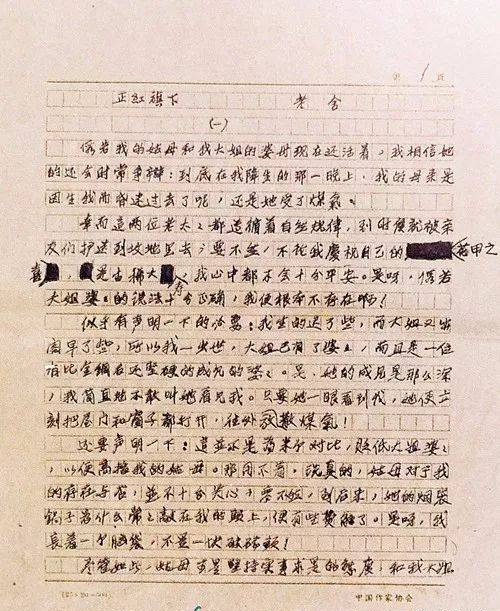 第 1 页
正红旗下 老舍
(一)
假若我的姑母和我大姐的婆母现在还活着，我相信她
们还会时常争辩：到底在我降生的那一晚上，我的母亲是
因生我而昏迷过去了呢，还是她受了煤气。
幸而这两位老太太都遵循着自然规律，到时候就被亲
友们护送到坟地里去；要不然，不论我庆祝自己的 花甲之
喜，是古稀大寿，我心中都不会十分平安。是呀，假若
大姐婆婆的说法十分正确，我便根本不存在啊！
似乎有声明一下的必要：我生的迟了些，而大姐又出
阁早了些，所以我一出世，大姐已有了婆婆，而且是一位
有比金钢石还坚硬的成见的婆婆。是，她的成见是那么深，
我简直地不敢叫她看见我。只要她一眼看到我，她便立
刻把屋门和窗子都打开，往外散放煤气！
还要声明一下：这并不是为来个对比，贬低大姐婆婆，
以便高抬我的姑母。那用不着。说真的，姑母对于我
的存在与否，并不十分关心；要不然，到后来，她的烟袋
锅子为什么常常敲在我的头上，便有些费解了。是呀，我
长着一个脑袋，不是一块破砖头！
尽管如此，姑母可是坚持实事求是的态度，和我大姐
中国作家协会